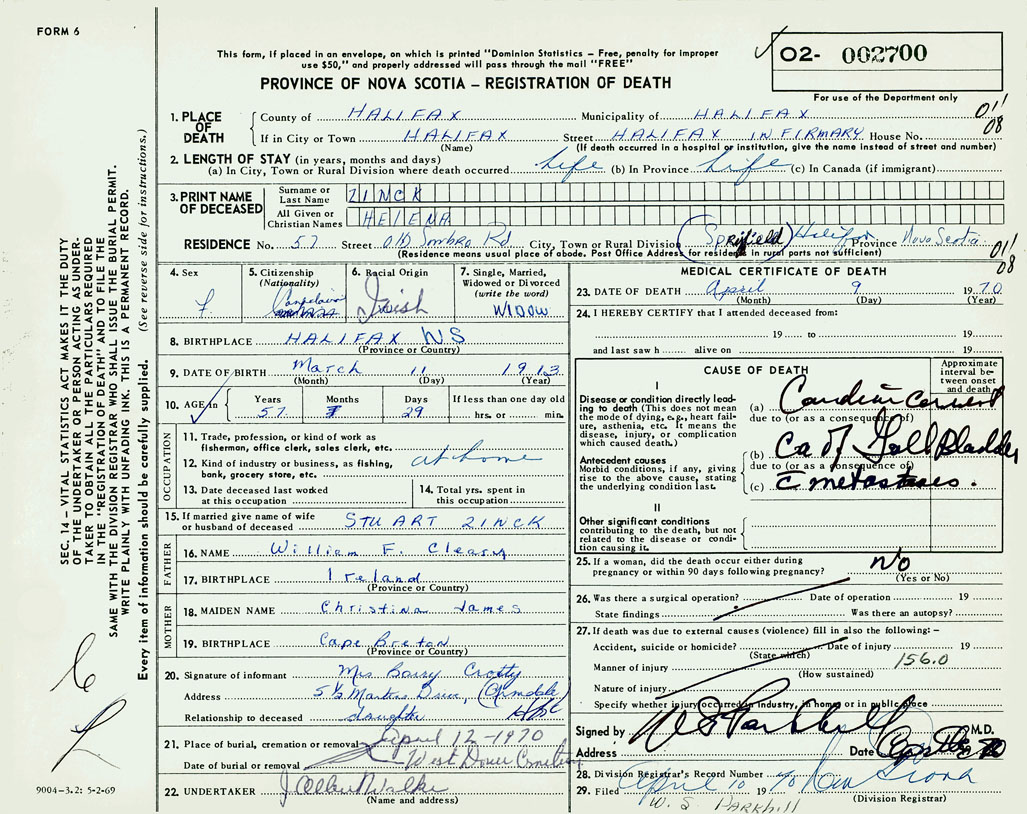 FORM 6
This form, if placed in an envelope, on which is printed "Dominion Statistics – Free, penalty for improper
use $50," and properly addressed will pass through the mail "FREE"
PROVINCE OF NOVA SCOTIA – REGISTRATION OF DEATH
O2- 002700
For use of the Department only
1. PLACE OF DEATH County of HALIFAX Municipality of HALIFAX 011
If in City or Town HALIFAX Street HALIFAX INFIRMARY House No. 08
(Name) (If death occurred in a hospital or institution, give the name instead of street and number)
2. LENGTH OF STAY (in years, months and days)
(a) In City, Town or Rural Division where death occurred Life (b) In Province Life (c) In Canada (if immigrant)
3. PRINT NAME OF DECEASED Surname or Last Name ZINCK
All Given or Christian Names HELENA
RESIDENCE No. 57 Street Old Sambro Rd City, Town or Rural Division (Spryfield) Halifax Province Nova Scotia 011
(Residence means usual place of abode. Post Office Address for residents in rural parts not sufficient) 08
4. Sex F.
5. Citizenship (Nationality) Canadian
6. Racial Origin Irish
7. Single, Married, Widowed or Divorced (write the word) WIDOW
8. BIRTHPLACE HALIFAX NS
(Province or Country)
9. DATE OF BIRTH March 11 1913
(Month) (Day) (Year)
10. AGE in Years 57 Months Days 29 If less than one day old hrs. or min.
OCCUPATION
11. Trade, profession, or kind of work as fisherman, office clerk, sales clerk, etc.
at home
12. Kind of industry or business, as fishing, bank, grocery store, etc.
13. Date deceased last worked at this occupation
14. Total yrs. spent in this occupation
15. If married give name of wife or husband of deceased STUART ZINCK
FATHER
16. NAME William F. Cleary
17. BIRTHPLACE Ireland
(Province or Country)
MOTHER
18. MAIDEN NAME Christina James
19. BIRTHPLACE Cape Breton
(Province or Country)
20. Signature of informant Mrs Crotty
Address Drive, (Armdale) Hfx
Relationship to deceased daughter
21. Place of burial, cremation or removal April 12-1970
Date of burial or removal West Dover Cemetery
22. UNDERTAKER J Allen Walker
(Name and address)
MEDICAL CERTIFICATE OF DEATH
23. DATE OF DEATH April 9 1970
(Month) (Day) (Year)
24. I HEREBY CERTIFY that I attended deceased from:
19 to 19
and last saw h alive on 19
CAUSE OF DEATH
Approximate interval between onset and death
I
Disease or condition directly leading to death (This does not mean the mode of dying, e.g., heart failure, asthenia, etc. It means the disease, injury, or complication which caused death.)
(a) Cardiac arrest
due to (or as a consequence of)
Antecedent causes
Morbid conditions, if any, giving rise to the above cause, stating the underlying condition last.
(b) Ca of Gall Bladder
due to (or as a consequence of)
(c) c̄ metastases.
II
Other significant conditions contributing to the death, but not related to the disease or condition causing it.
25. If a woman, did the death occur either during pregnancy or within 90 days following pregnancy? No
(Yes or No)
26. Was there a surgical operation? Date of operation 19
State findings Was there an autopsy?
27. If death was due to external causes (violence) fill in also the following: –
Accident, suicide or homicide? Date of injury 19
(State which)
Manner of injury 156.0
(How sustained)
Nature of injury
Specify whether injury occurred in industry, in home or in public place
Signed by W S Parkhill M.D.
Address Date 19 70
28. Division Registrar's Record Number
29. Filed April 10 1970
W. S. PARKHILL (Division Registrar)
SEC. 14 – VITAL STATISTICS ACT MAKES IT THE DUTY
OF THE UNDERTAKER OR PERSON ACTING AS UNDER-
TAKER TO OBTAIN ALL THE PARTICULARS REQUIRED
IN THE "REGISTRATION OF DEATH" AND TO FILE THE
SAME WITH THE DIVISION REGISTRAR WHO SHALL ISSUE THE BURIAL PERMIT.
WRITE PLAINLY WITH UNFADING INK. THIS IS A PERMANENT RECORD.
Every item of information should be carefully supplied. (See reverse side for instructions.)
9004-3.2: 5-2-69